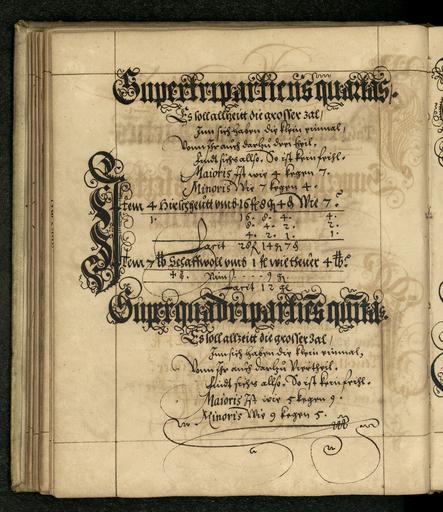 Supertripartiens quartas,
Es soll allzeitt die grosser zal,
Inn sich haben die klein einmal,
Vnnd ihr auch darzu drei theil.
findt sichs allso. So ist kein feihl.
Maioris Ist wie 4 kegen 7.
Minoris Wie 7 kegen 4.
Item 4 vmb 16 fl 8 g 4 d Wie 7
1. 16. 8. 4.
8. 4. 2. 2.
4. 2. 1. 1.
Facit 28 fl 14 g 7 d
Item 7 lb Schaffwoll vmb 1 fl wie theuer 4 lb
Facit 12 g
Superquadripartiens quintas.
Es soll allzeitt die grosser zal,
Inn sich haben die klein einmal,
Vnnd ihr auch darzu Viertheil.
findt sichs allso. So ist kein feihl.
Maioris Ist wie 5 kegen 9.
Minoris Wie 9 kegen 5.